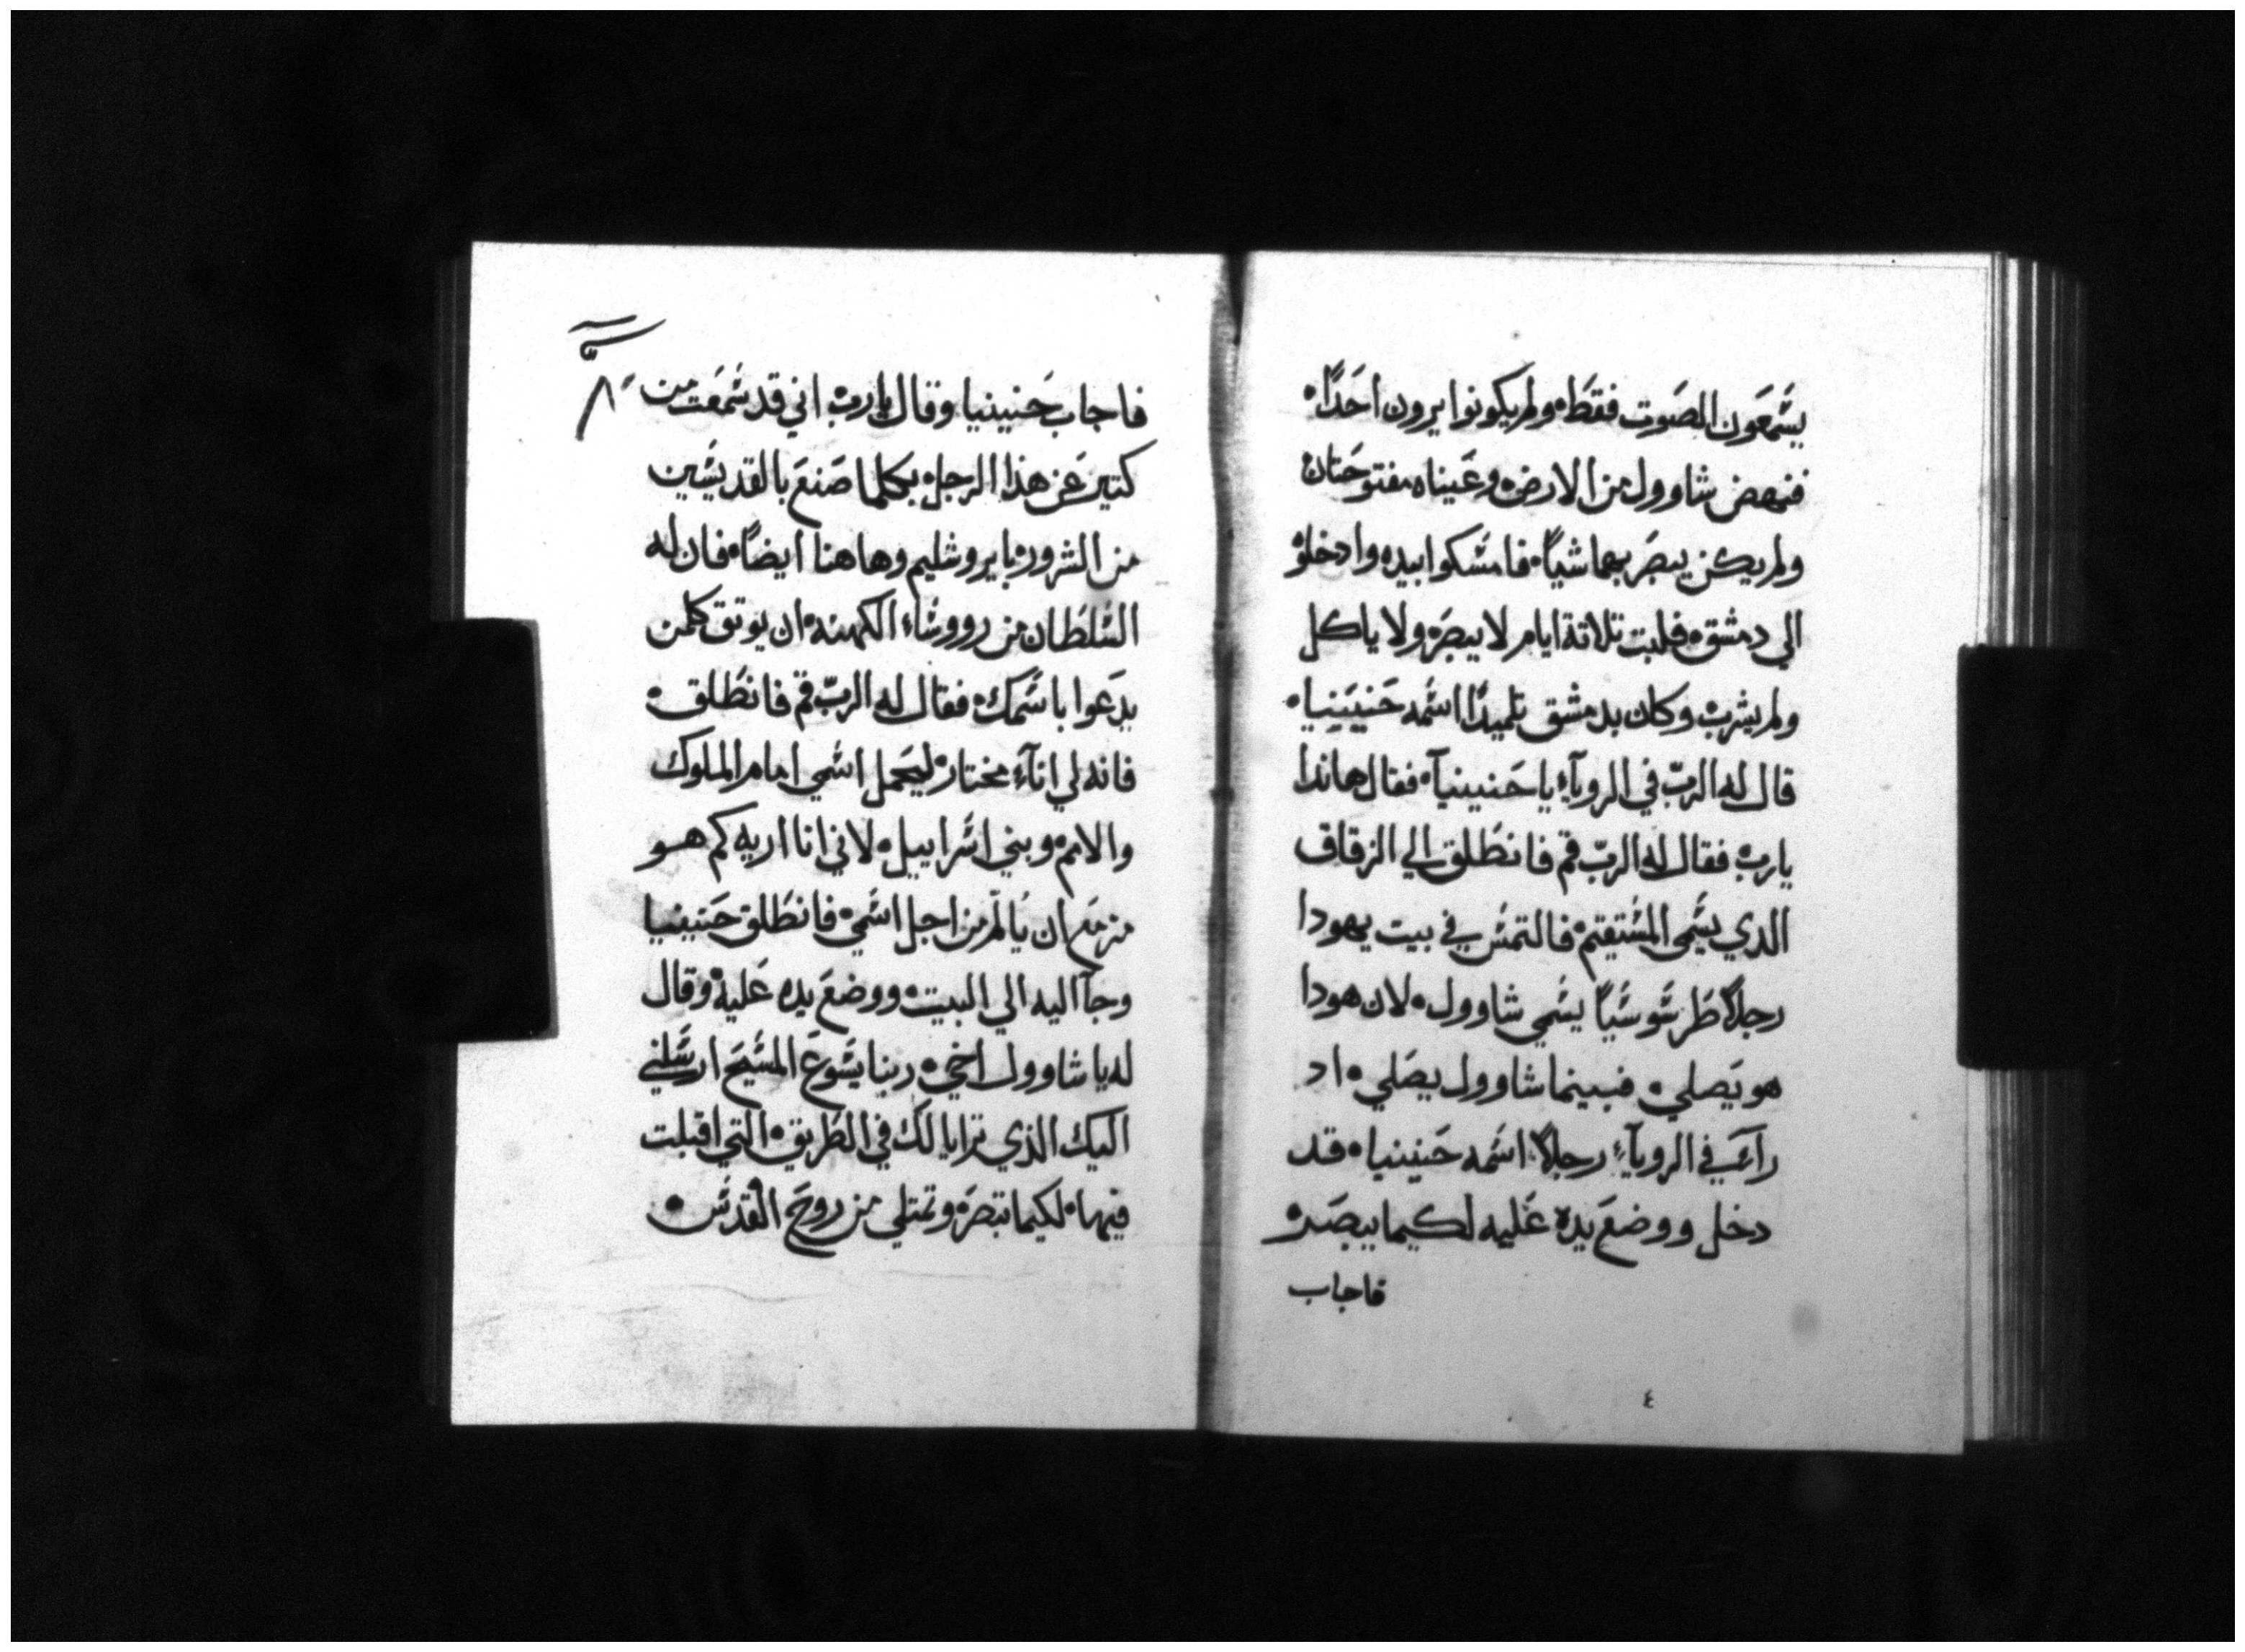 يسمعون الصوت فقط ولم يكونوا يرون احدًا
فنهض شاوول من الارض وعيناه مفتوحتان
ولم يكن يبصر بهما شياً فامسكوا بيده وادخلوه
الي دمشق فلبت تلاتة ايام لا يبصر ولا ياكل
ولم يشرب وكان بدمشق تلميدًا اسمه حنينيا
قال له الرب في الروياء يا حنينيا فقال هاندا
يارب فقال له الرب قم فانطلق الي الزقاق
الدي يسمى المستقيم فالتمس في بيت يهودا
رجلاً طرسوسياً يسمي شاوول لان هودا
هو يصلي فبينما شاوول يصلي اد
راي في الروياء رجلاً اسمه حنينيا قد
دخل ووضع يده عليه لكيما يبصر
فاجاب
٤
فاجاب حنينيا وقال يارب اني قد سمعت من
كتير عن هذا الرجل بكلما صنع بالقديسين
من الشرور بايروشليم وهاهنا ايضاً فان له
السلطان من رووساء الكهنه ان يوتق كلمن
يدعوا باسمك فقال له الرب قم فانطلق
فانه لي اناء مختار ليحمل اسمي امام الملوك
والامم وبني اسراييل لاني انا اريه كم هو
مزمع ان يالم من اجل اسمي فانطلق حنينيا
وجآ اليه الي البيت ووضع يده عليه وقال
له يا شاوول اخي ربنا يسوع المسيح ارسلني
اليك الذي ترايا لك في الطريق التي اقبلت
فيها لكيما تبصر وتمتلي من روح القدس